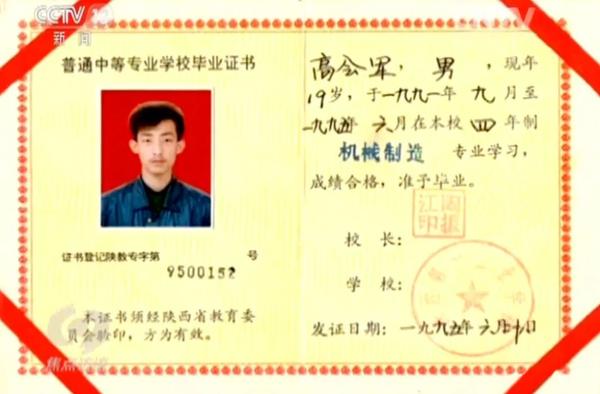 CCTV
新闻
普通中等专业学校毕业证书
证书登记陕教专字第 号
9500152
本证书须经陕西省教育委
员会验印，方为有效。
焦点访谈
高会军，男，现年
19岁，于一九九一年九月至
一九九五年六月在本校四年制
机械制造 专业学习，
成绩合格，准予毕业。
校长：
学校：
发证日期：一九九五年六月 日